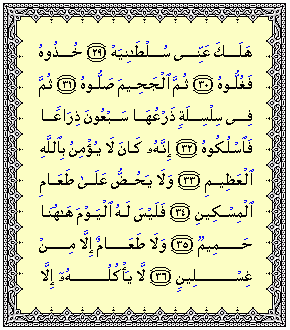 هَلَكَ عَنِّى سُلْطَٰنِيَهْ ٢٩ خُذُوهُ
فَغُلُّوهُ ٣٠ ثُمَّ ٱلْجَحِيمَ صَلُّوهُ ٣١ ثُمَّ
فِى سِلْسِلَةٍ ذَرْعُهَا سَبْعُونَ ذِرَاعًا
فَٱسْلُكُوهُ ٣٢ إِنَّهُۥ كَانَ لَا يُؤْمِنُ بِٱللَّهِ
ٱلْعَظِيمِ ٣٣ وَلَا يَحُضُّ عَلَىٰ طَعَامِ
ٱلْمِسْكِينِ ٣٤ فَلَيْسَ لَهُ ٱلْيَوْمَ هَٰهُنَا
حَمِيمٌ ٣٥ وَلَا طَعَامٌ إِلَّا مِنْ
غِسْلِينٍ ٣٦ لَّا يَأْكُلُهُۥٓ إِلَّا